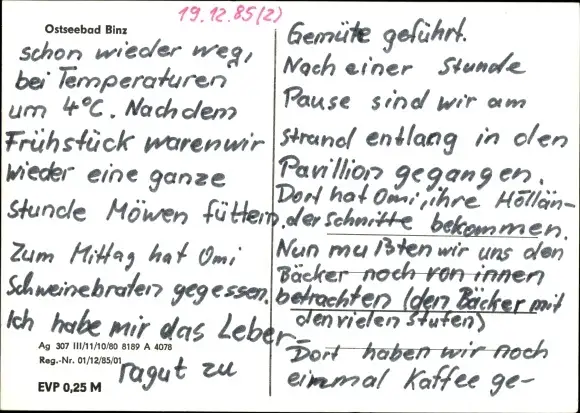 19.12.85(2)
Ostseebad Binz
schon wieder weg,
bei Temperaturen
um 4°C. Nachdem
Frühstück waren wir
wieder eine ganze
Stunde Möwen füttern.
Zum Mittag hat Omi
Schweinebraten gegessen.
Ich habe mir das Leber-
Ag 307 III/11/10/80 8189 A 4078
Reg.-Nr. 01/12/85/01
ragut zu
EVP 0,25 M
Gemüte geführt.
Nach einer Stunde
Pause sind wir am
Strand entlang in den
Pavillion gegangen.
Dort hat Omi, ihre Höllän-
der Schnitte bekommen.
Nun mußten wir uns den
Bäcker noch von innen
betrachten (den Bäcker mit
den vielen Stufen)
Dort haben wir noch
einmal Kaffee ge-